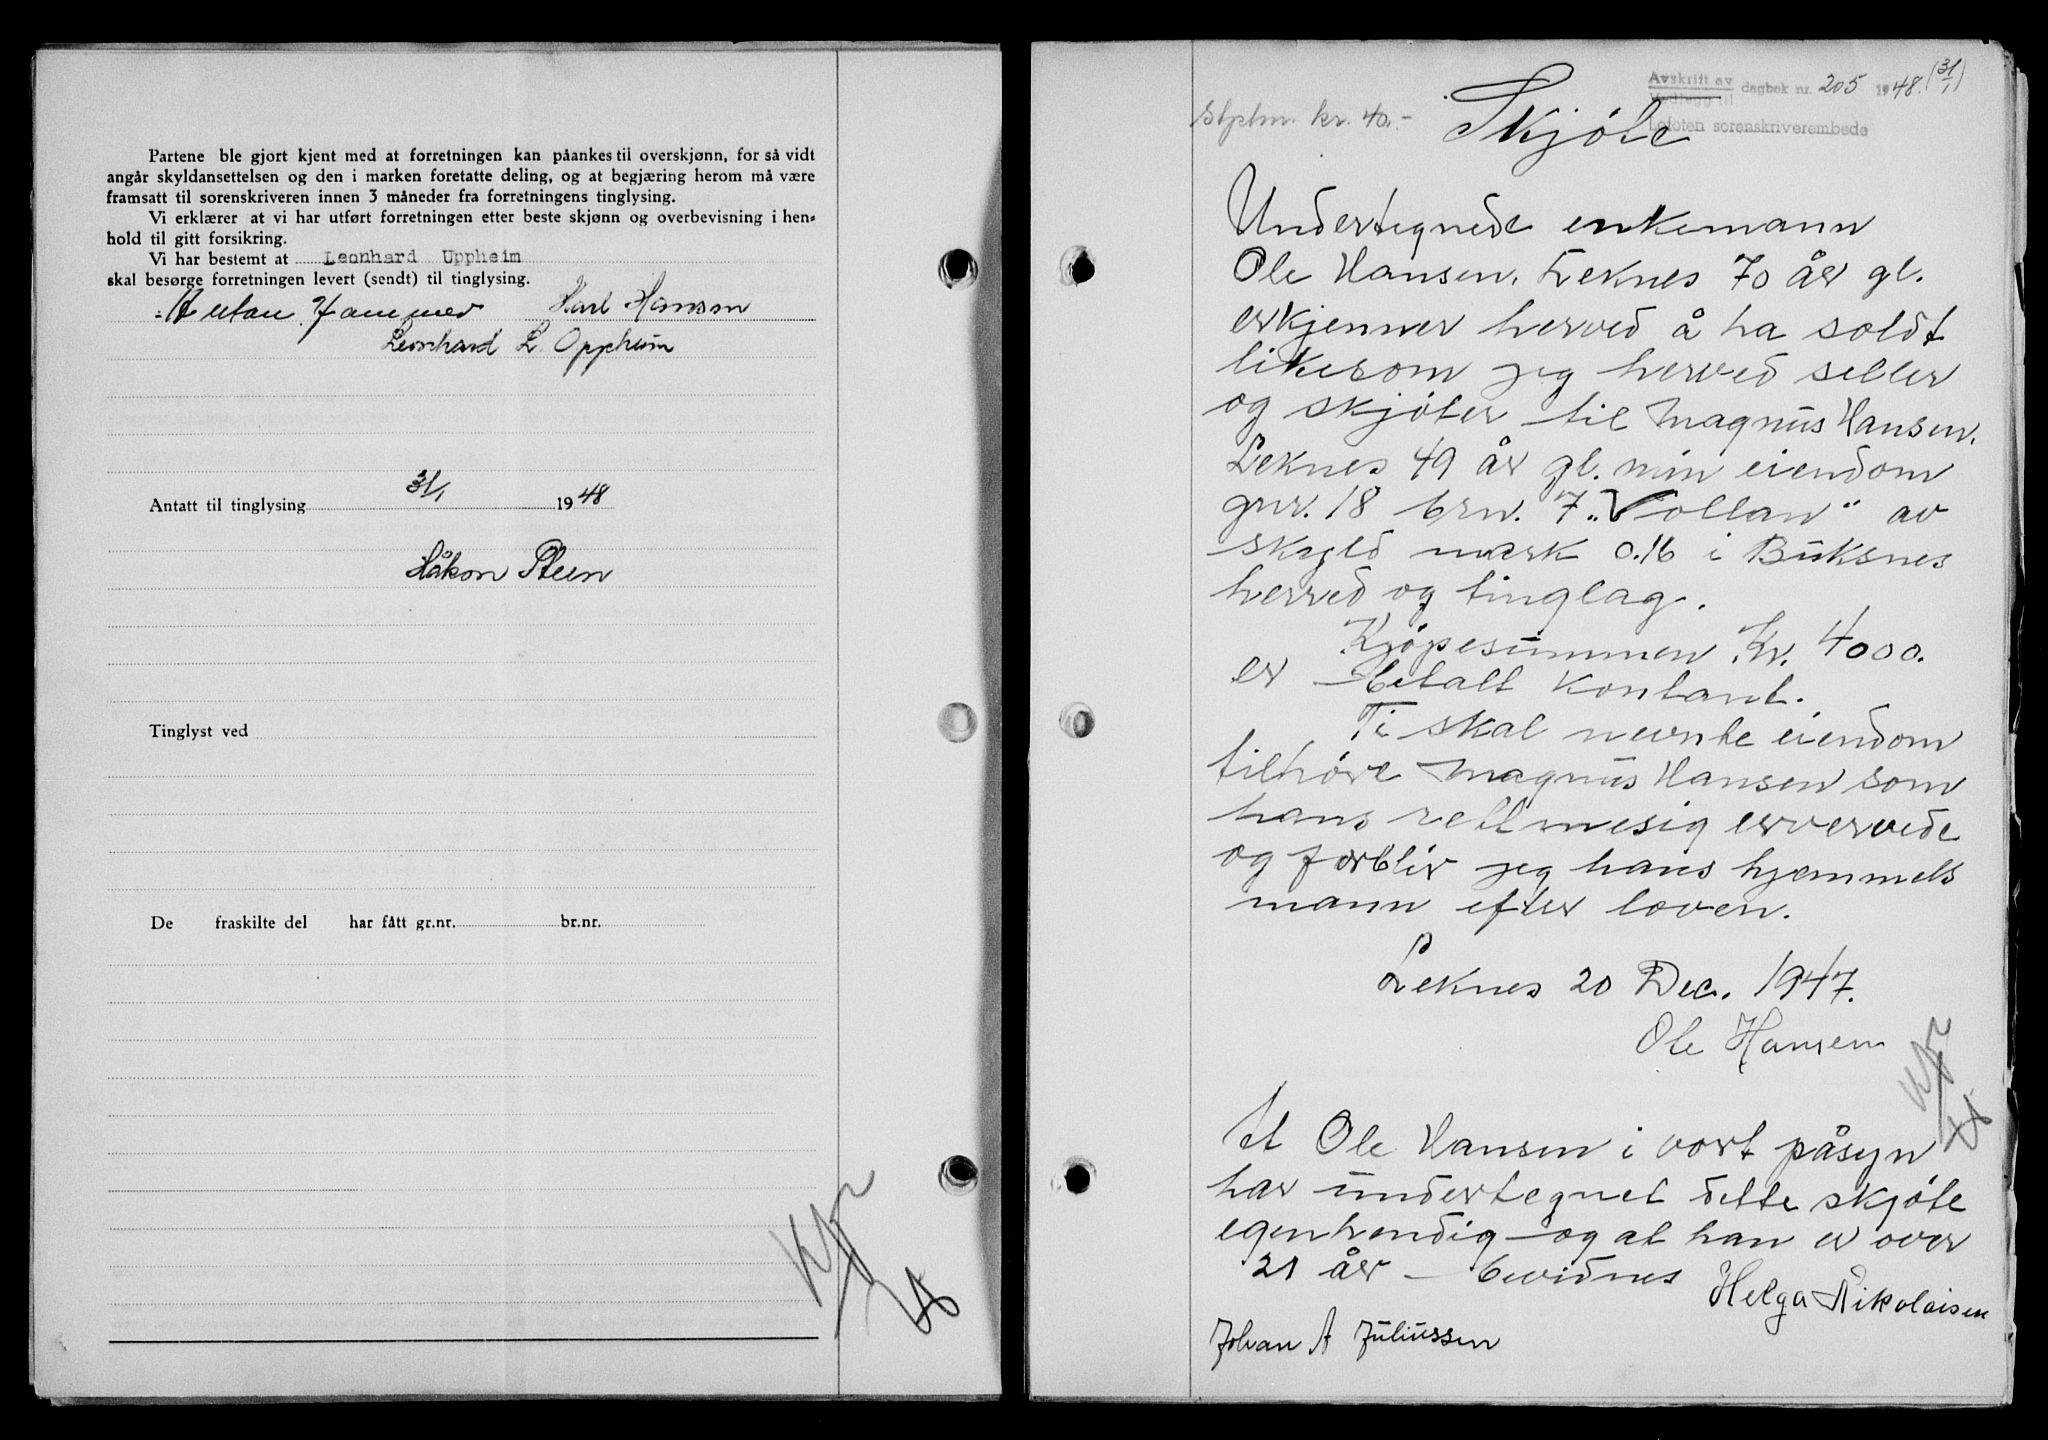 Partene ble gjort kjent med at forretningen kan påankes til overskjønn, for så vidt
angår skyldansettelsen og den i marken foretatte deling, og at begjæring herom må være
framsatt til sorenskriveren innen 3 måneder fra forretningens tinglysing.
Vi erklærer at vi har utført forretningen etter beste skjønn og overbevisning i hen-
hold til gitt forsikring.
Vi har bestemt at Leonhard Uppheim
skal besørge forretningen levert (sendt) til tinglysing.
Karl Hansen
Leonhard L. Oppheim
Antatt til tinglysing 31/1 1948
Håkon Steen
Tinglyst ved
De fraskilte del har fått gr.nr. br.nr.
Avskrift av
Vedlegg til
dagbok nr. 205 1948 (31/1)
Lofoten sorenskriverembede
Stplm. kr. 40.-
Skjöte
Undertegnede enkemann
Ole Hansen. Leknes 70 år gl.
erkjenner herved å ha soldt
likesom jeg herved seller
og skjöter til Magnus Hansen.
Leknes 49 år gl. min eiendom
gnr. 18 brn. 7 „Vollan" av
skyld mark 0.16 i Buksnes
herred og tinglag.
Kjöpesummen Kr. 4000.
er betalt kontant.
Ti skal nevnte eiendom
tilhöre Magnus Hansen som
hans rettmesig ervervede
og forblir jeg hans hjemmels
mann efter loven.
Leknes 20 Dec. 1947.
Ole Hansen
At Ole Hansen i vort påsyn
har undertegnet dette skjöte
egenhendig og at han er over
21 år bevidnes
Helga Nikolaisen
Johan A Juliussen